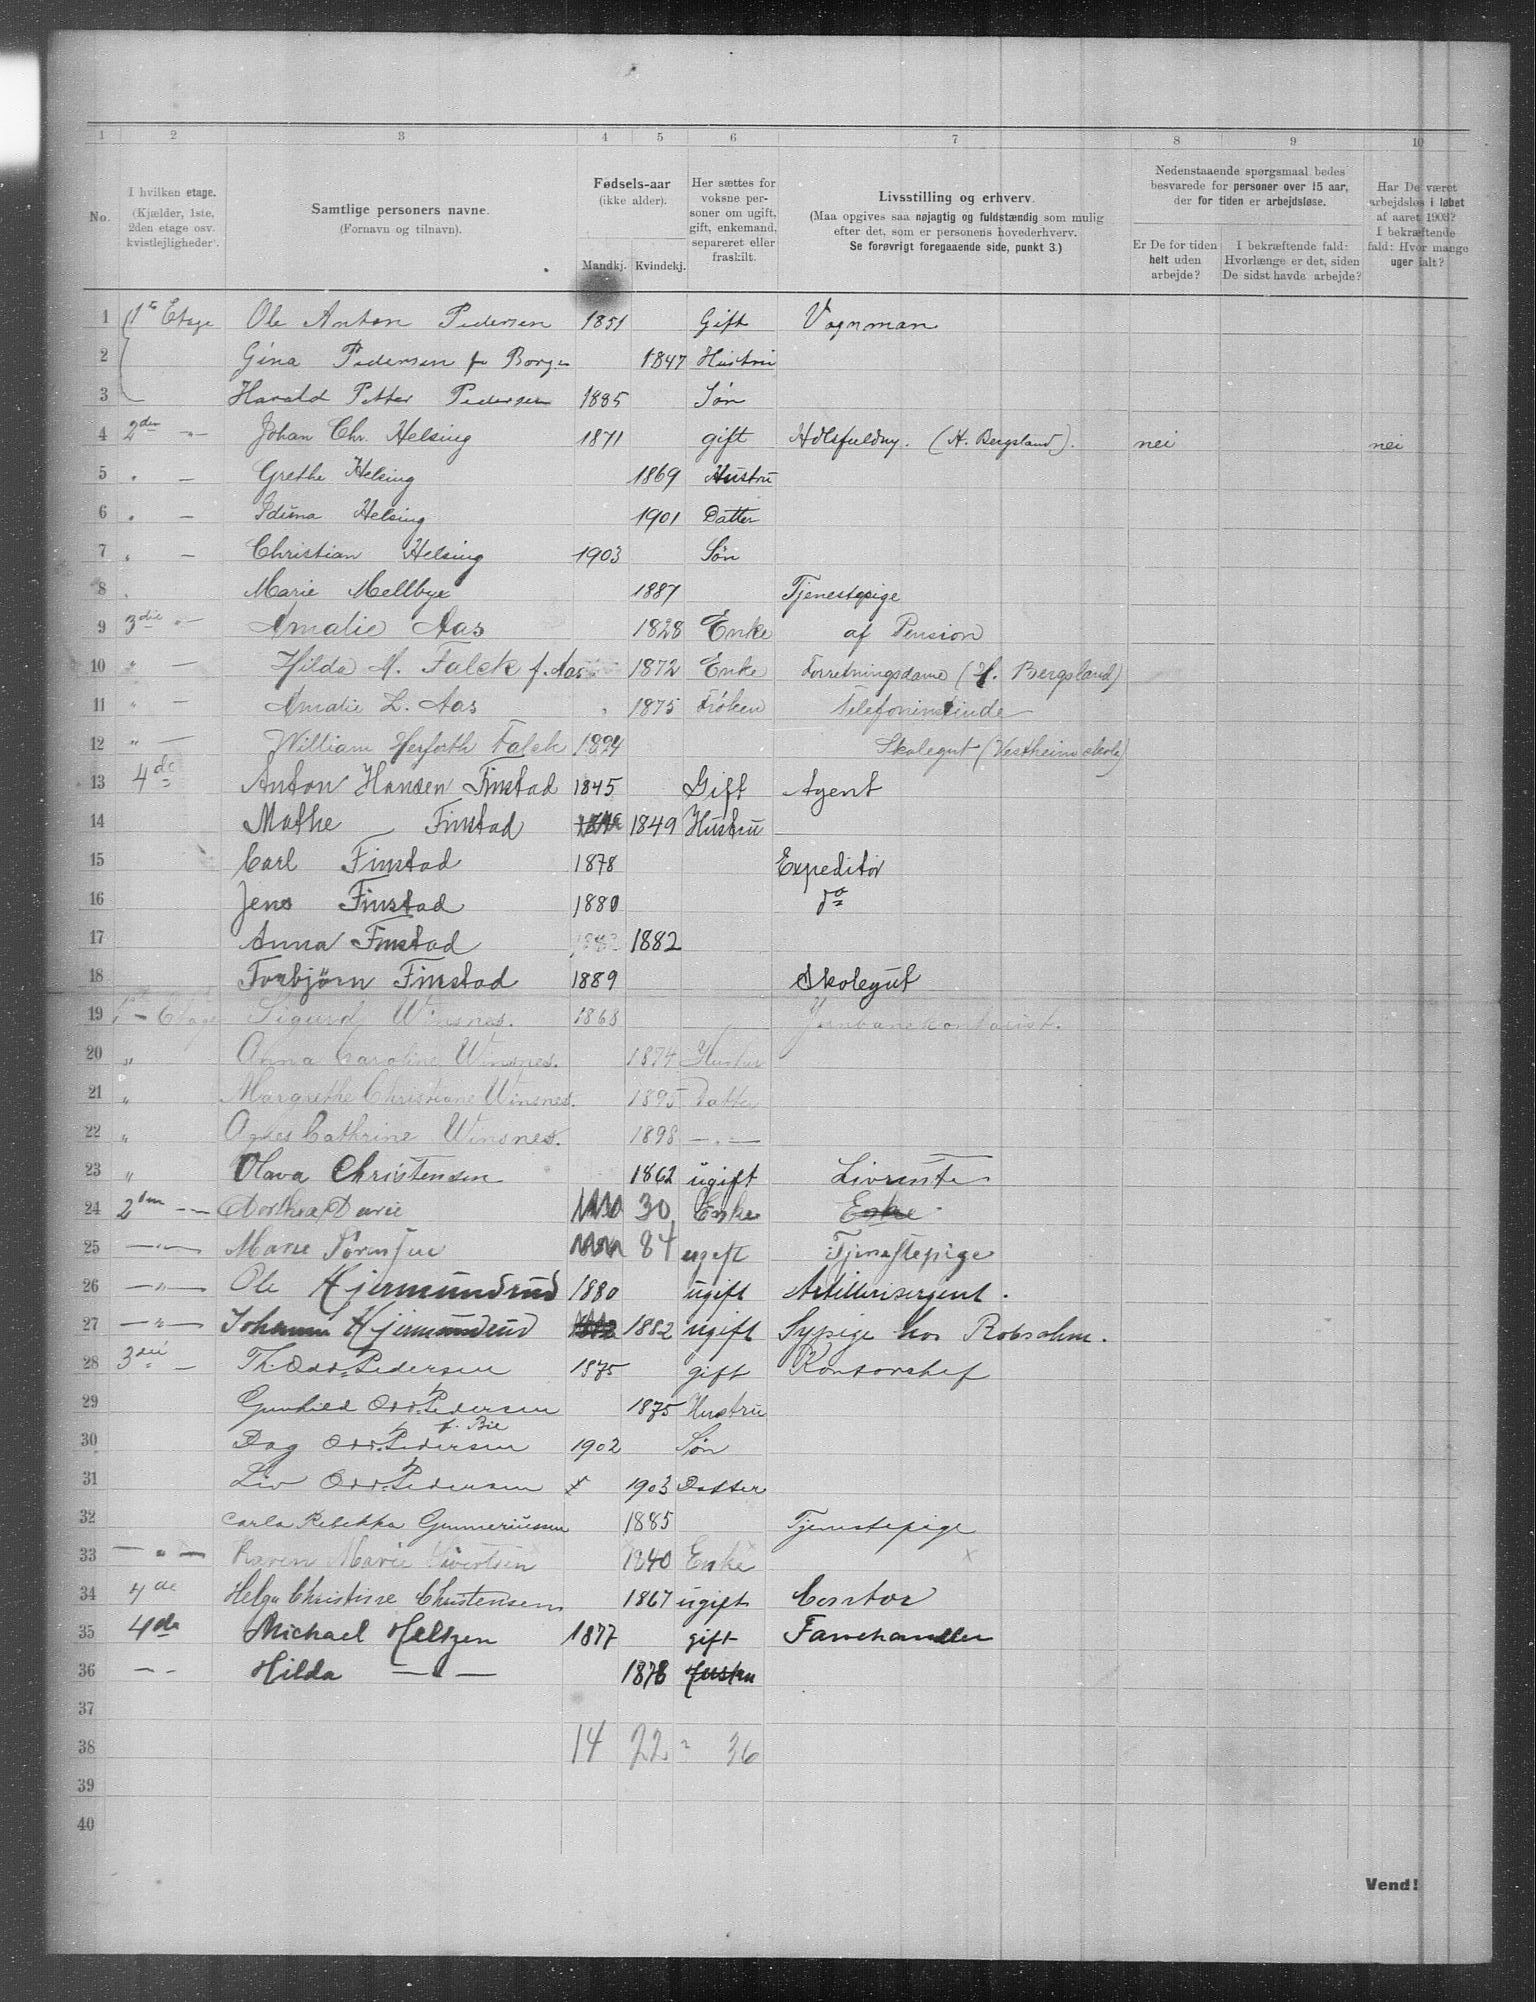 1 2 3 4 5 6 7 8 9 10
No.
I hvilken etage. (Kjælder, 1ste, 2den etage osv. kvistlejligheder).
Samtlige personers navne. (Fornavn og tilnavn).
Fødsels-aar (ikke alder). Mandkj. Kvindekj.
Her sættes for voksne personer om ugift, gift, enkemand, separeret eller fraskilt.
Livsstilling og erhverv. (Maa opgives saa nøjagtig og fuldstændig som mulig efter det, som er personens hovederhverv. Se forøvrigt foregaaende side, punkt 3.)
Nedenstaaende spørgsmaal bedes besvarede for personer over 15 aar, der for tiden er arbejdsløse.
Er De for tiden helt uden arbejde?
I bekræftende fald: Hvorlænge er det, siden De sidst havde arbejde?
Har De været arbejdsløs i løbet af aaret 1903? I bekræftende fald: Hvor mange uger ialt?
1 1ste Etage Ole Anton Pedersen 1851 Gift Vognman
2 Gina Pedersen f. 1847 Hustru
3 Harald Petter Pedersen 1885 Søn
4 2den -"- Johan Chr. Helsing 1871 gift (H. Bergsland). nei nei
5 " - Grethe Helsing 1869 Hustru
6 " - Iduna Helsing 1901 Datter
7 " - Christian Helsing 1903 Søn
8 " Marie Mellbye 1887 Tjenestepige
9 3die "- Amalie Aas 1828 Enke af Pension
10 " - Hilda M. Falck f. Aas 1872 Enke Forretningsdame (H. Bergsland)
11 " - Amalie L. Aas " 1875 Frøken Telefonistinde
12 " - William Herforth Falck 1894 Skolegut (Vestheim skole)
13 4de Anton Hansen Finstad 1845 Gift Agent
14 Mathe Finstad 1849 Hustru
15 Carl Finstad 1878 Expeditør
16 Jens Finstad 1880 do
17 Anna Finstad 1882 1882
18 Torbjørn Finstad 1889 Skolegut
19 1ste Etage Sigurd Winsnes. 1868 Jernbanekontorist.
20 " Anna Caroline Winsnes. 1874 Hustru
21 " Margrethe Christiane Winsnes. 1895 Datter
22 " Agnes Cathrine Winsnes. 1898 -"-
23 " Olava Christensen 1862 ugift Livrente
24 2den -- Dorthea Davie 30 Enke Enke
25 -"- Marie Sørensen 84 ugift Tjenestepige
26 -"- Ole Hjermundrud 1880 ugift Artillerisergent.
27 -"- Johanna Hjermundrud 1882 ugift Sypige hos Robsahm.
28 3die " - Th. Odd. Pedersen 1875 gift Kontorchef
29 Gunhild Odd. Pedersen f. Bie 1875 Hustru
30 Dag Odd. Pedersen 1902 Søn
31 Liv Odd. Pedersen x 1903 Datter
32 Carla Rebekka Gunneriussen 1885 Tjenestepige
33 -"- Karen Marie Sivertsen 1840 Enke x
34 4de Helga Christine Christensen 1867 ugift Contor
35 4de Michael Heltzen 1877 gift Farvehandler
36 -- Hilda -"- 1878 Hustru
37
38 14 22 = 36
39
40
Vend!